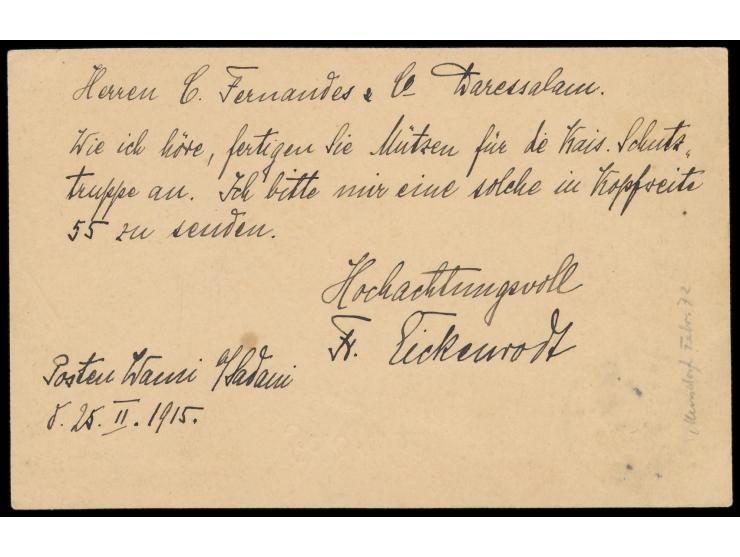 Herren C. Fernandes & Co Daressalam.
Wie ich höre, fertigen Sie Mützen für de Kais. Schutz-
truppe an. Ich bitte mir eine solche in Kopfweite
55 zu senden.
Hochachtungsvoll
Fr. Eickenrodt
Posten Wami b/Sadani
d. 25. II. 1915.